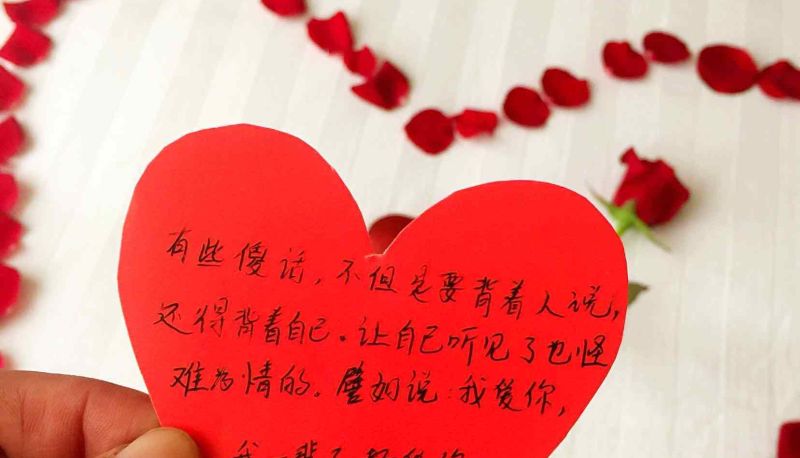 有些傻话，不但是要背着人说，
还得背着自己。让自己听见了也怪
难为情的。譬如说：我爱你，
我一辈子都爱你